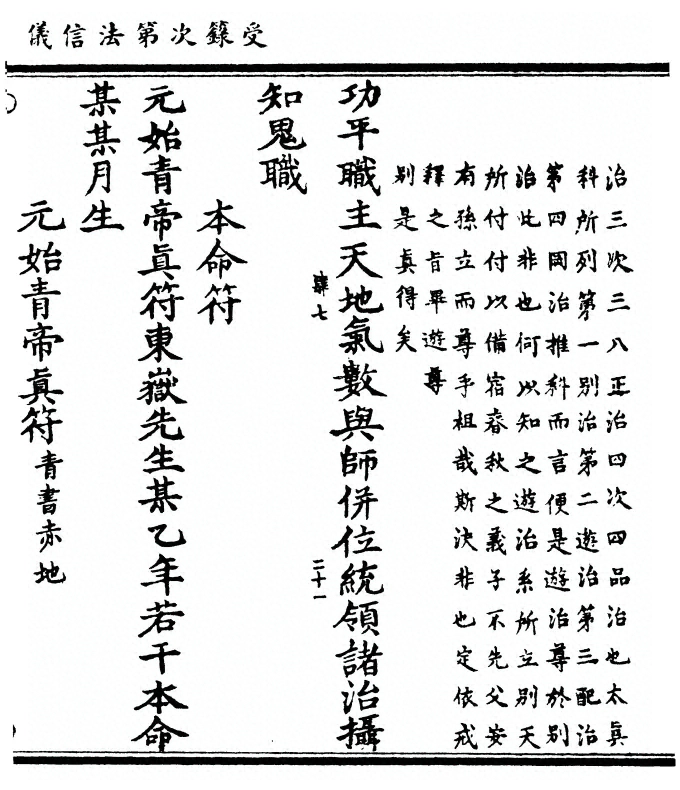 受籙次第法信儀
治三次三八正治四次四品治也太眞
科所列第一別治第二遊治第三配治
第四岡治推科而言便是遊治尊於別
治此非也何以知之遊治系所立別天
所付付以備宿春秋之義子不先父安
有孫立而尊乎祖哉斯決非也定依戒
釋之旨畢遊尊
別是真得矣
功平職主天地氣數與師併位統領諸治攝
肆七
二十一
知鬼職
本命符
元始青帝眞符東嶽先生某乙年若干本命
某某月生
元始青帝眞符青書赤地